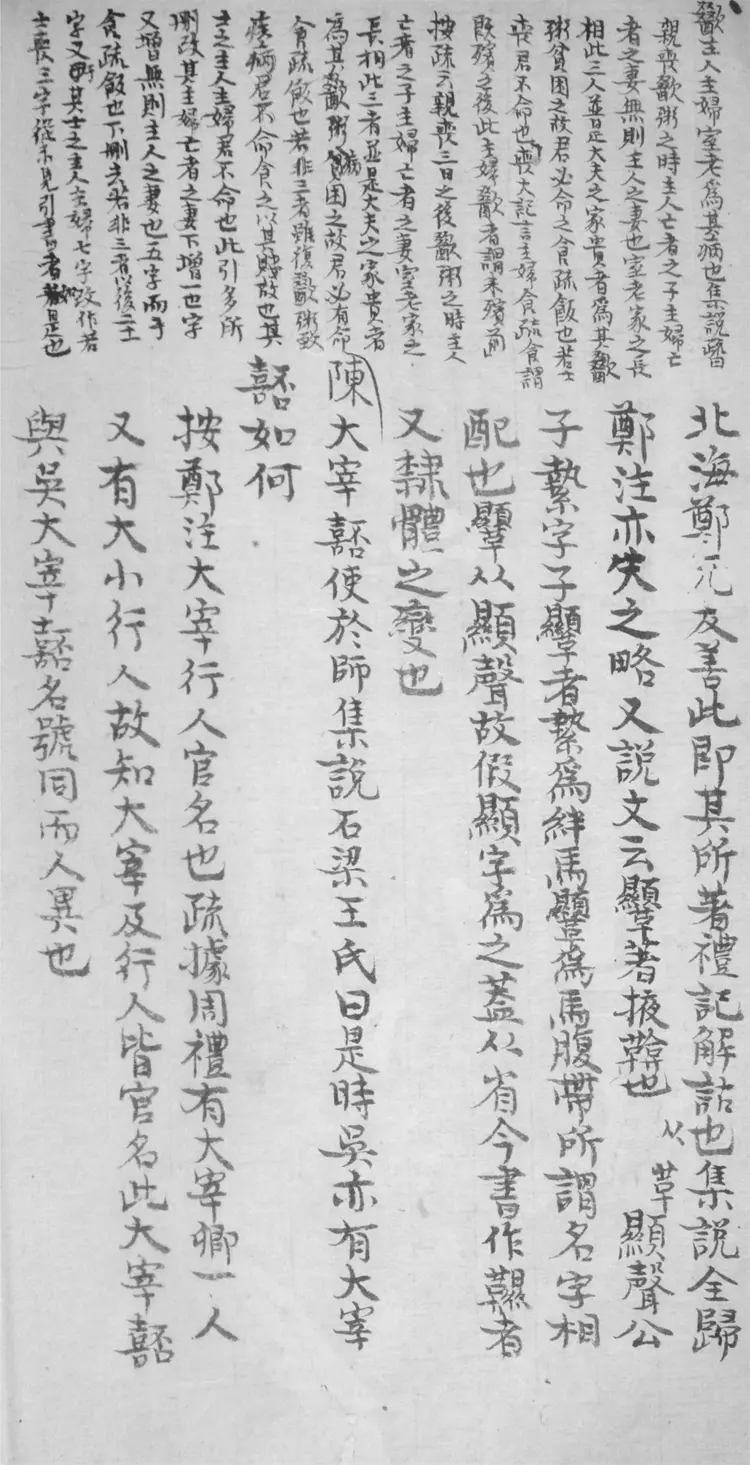 歠主人主婦室老爲其病也集說疏曰
親喪歠粥之時主人亡者之子主婦亡
者之妻無則主人之妻也室老家之長
相此三人並是大夫之家貴者爲其歠
粥貧困之故君必命之食疏飯也若士
喪君不命也喪大記言主婦食疏食謂
旣殯之後此主婦歠者謂未殯前
按疏云親喪三日之後歠粥之時主人
亡者之子主婦亡者之妻室老家之
長相此三者並是大夫之家貴者
爲其歠粥病困之故君必有命
食疏飯也若非三者雖復歠粥致
疾病君不命食之以其賤故也其
士之主人主婦君不命也此引多所
刪改其主婦亡者之妻下增一也字
又增無則主人之妻也五字而于
食疏飯也下刪去若非三者以後二十
字又其士之主人主婦七字改作若
士喪三字從未見引書者如是也
北海鄭元友善此即其所著禮記解詁也集說全歸
鄭注亦失之略又說文云韅著掖鞥也从革顯聲公
子縶字子韅者縶爲絆馬韅爲馬腹帶所謂名字相
配也韅从顯聲故假顯字爲之蓋从省今書作韅者
又隸體之變也
陳大宰嚭使於師集說石梁王氏曰是時吳亦有大宰
嚭如何
按鄭注大宰行人官名也疏據周禮有大宰卿一人
又有大小行人故知大宰及行人皆官名此大宰嚭
與吳大宰嚭名號同而人異也